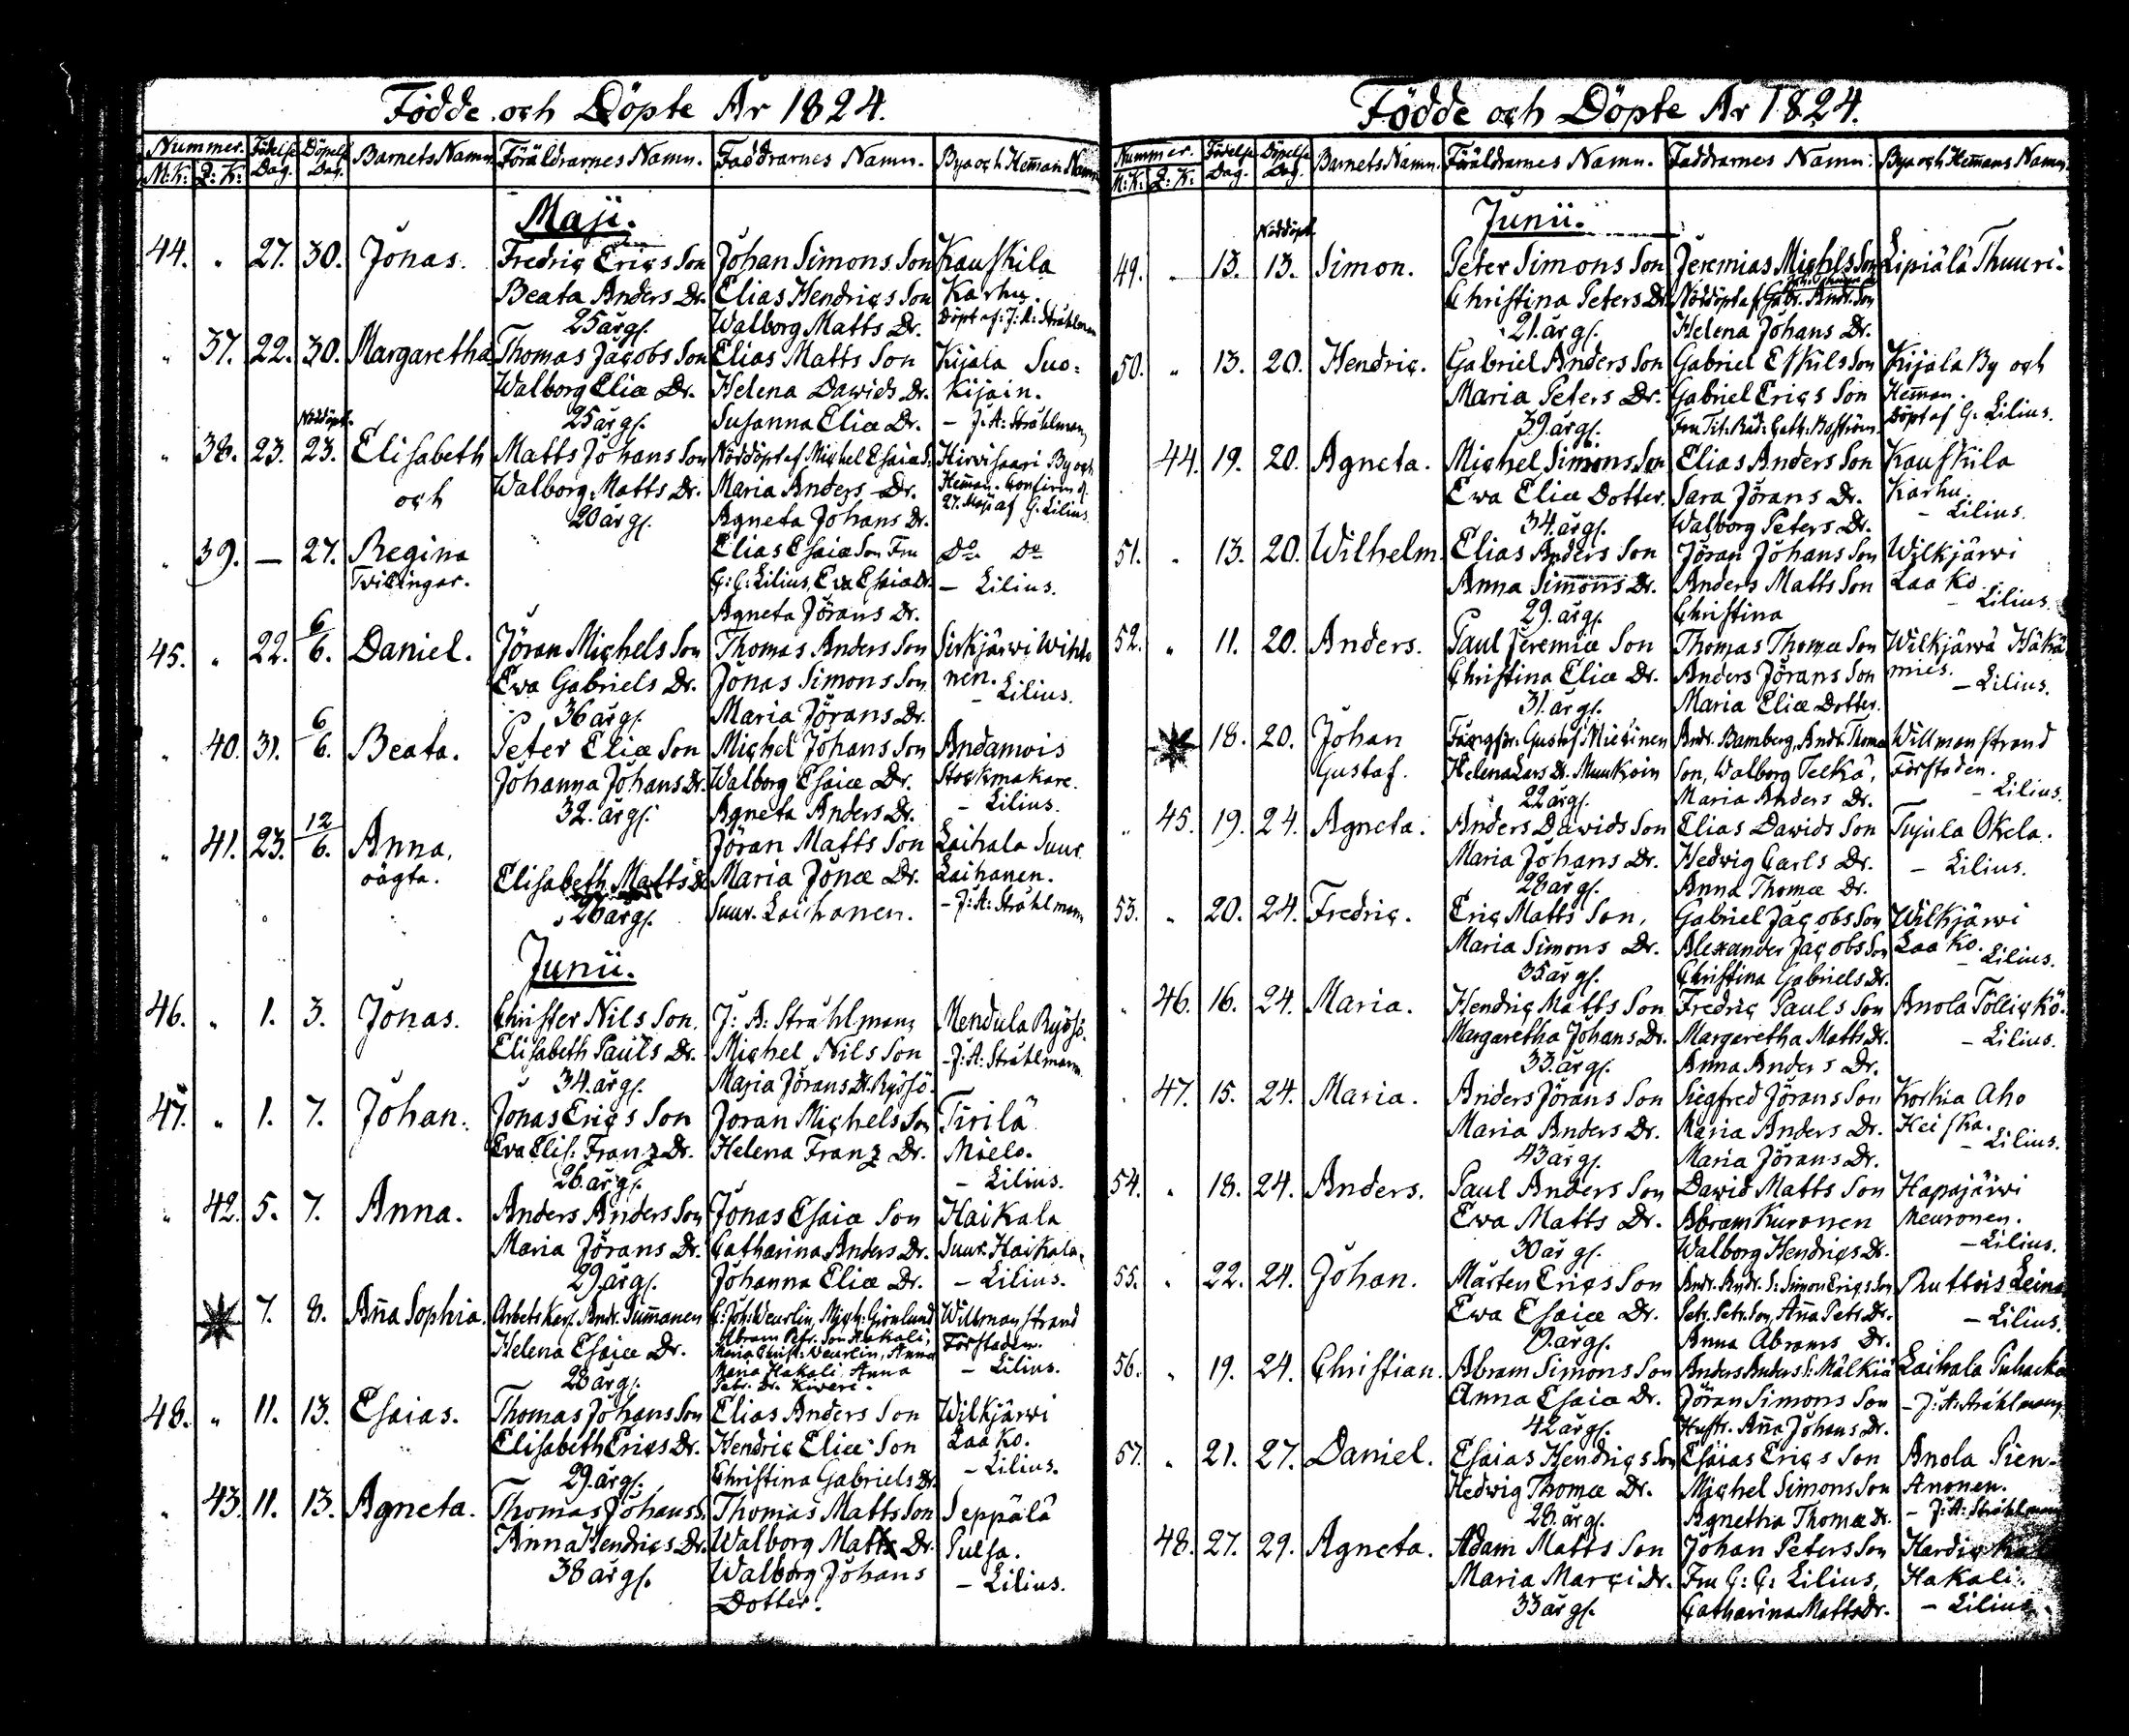 Födde och Döpte År 1824.
Nummer. Födelse Dag. Döpelse Dag. Barnets Namn. Föräldrarnes Namn. Faddrarnes Namn. Bya och Hemman Namn
M:K: Q:K:
Maji.
44. " 27. 30. Jonas. Fredric Erics Son Johan Simons Son Kauskila
Beata Anders Dr. Elias Hendrics Son Karhu.
25 år gl. Walborg Matts Dr. Döpt af: J: A: Stråhlman
" 37. 22. 30. Margaretha Thomas Jacobs Son Elias Matts Son Kijala Suo=
Walborg Eliæ Dr. Helena Dawids Dr. Kijain.
25 år gl. Susanna Eliæ Dr. – J: A: Stråhlman
Nöddöpt.
" 38. 23. 23. Elisabeth Matts Johans Son Nöddöpt af Michel Esaiæ S: Hirvisaari By och
och Walborg Matts Dr. Maria Anders Dr. Hemman. Confirm. d.
20 år gl. Agneta Johans Dr. 27. Maji af G. Lilius
" 39. — 27. Regina Elias Esaiæ Son Fru Do Do
Tvillingar. C: G: Lilius, Eva Esaiæ Dr. – Lilius.
Agneta Jörans Dr.
45. " 22. 6/6. Daniel. Jöran Michels Son Thomas Anders Son Sirkjärwi Wihto
Ewa Gabriels Dr. Jonas Simons Son nen.
36 år gl. Maria Jörans Dr. – Lilius.
" 40. 31. 6/6. Beata. Peter Eliæ Son Michel Johans Son Andamois
Johanna Johans Dr. Walborg Esaiæ Dr. Stockmakare.
32. år gl. Agneta Anders Dr. – Lilius.
" 41. 23. 12/6. Anna, Jöran Matts Son Laihala Suur
oägta. Elisabeth Matts Dr. Maria Jonæ Dr. Laihanen.
26 år gl. Suur. Laihanen. – J: A: Stråhlman
Junii.
46. " 1. 3. Jonas. Christer Nils Son. J: A: Stråhlman, Mendula Ryösö.
Elisabeth Pauls Dr. Michel Nils Son – J: A: Stråhlman
34. år gl. Maria Jörans Dr. Ryösö.
47. " 1. 7. Johan. Jonas Erics Son Joran Michels Son Tirilä
Eva Elis: Franz Dr. Helena Franz Dr. Mielo.
26. år gl. – Lilius.
" 42. 5. 7. Anna. Anders Anders Son Jonas Esaiæ Son Haikala
Maria Jörans Dr. Catharina Anders Dr. Suur. Haikala.
29. år gl. Johanna Eliæ Dr. – Lilius.
7. 8. Aña Sophia. Arbetskarl. Andr. Summanen C: Joh: Weurlin, Mich: Grönlund Willmanstrand
Abram Petr. Son Hakali, Förstaden.
Helena Esaiæ Dr. Maria Christ: Weurlin, Anna – Lilius.
28 år gl. Maria Hakali, Anna
Petr. Dr. Kiveri.
48. " 11. 13. Esaias. Thomas Johans Son Elias Anders Son Wilkjärwi
Elisabeth Erics Dr. Hendric Eliæ Son Laako.
29. år gl. Christina Gabriels Dr. – Lilius.
" 43. 11. 13. Agneta. Thomas Johans S. Thomas Matts Son Seppälä
Anna Hendrics Dr. Walborg Matts Dr. Pulsa.
38 år gl. Walborg Johans – Lilius.
Dotter.
Födde och Döpte År 1824.
Nummer. Födelse Dag. Döpelse Dag. Barnets Namn. Föräldrarnes Namn. Faddrarnes Namn. Bya och Hemans Namn.
M:K: Q:K:
Junii.
Nöddöpt
49. " 13. 13. Simon. Peter Simons Son Jeremias Michls Son Lipiälä Thuuri.
Christina Peters Dr. Nöddöpt af Gabr. Andr. Son
21. år gl. Helena Johans Dr.
50. " 13. 20. Hendric. Gabriel Anders Son Gabriel Eskils Son Kijala By och
Maria Peters Dr. Gabriel Erics Son Heman.
39. år gl. Fru Tit: Råd: Cath: Boström Döpt af G. Lilius.
44. 19. 20. Agneta. Michel Simons Son Elias Anders Son Kauskila
Ewa Eliæ Dotter. Sara Jörans Dr. Karhu.
34. år gl. Walborg Peters Dr. – Lilius.
51. " 13. 20. Wilhelm. Elias Anders Son Jöran Johans Son Wilkjärwi
Anna Simons Dr. Anders Matts Son Laako
29. år gl. Christina – Lilius.
52. " 11. 20. Anders. Paul Jeremiæ Son Thomas Thomæ Son Wilkjärwä Häkä
Christina Eliæ Dr. Anders Jörans Son mies.
31. år gl. Maria Eliæ Dotter. – Lilius.
18. 20. Johan Gustaf Miekinen Andr. Bamberg, Andr. Thomæ Willmanstrand
Gustaf. Helena Lars Dr. Muukoin Son, Walborg Telkä, Förstaden.
22 år gl. Maria Anders Dr. – Lilius.
" 45. 19. 24. Agneta. Anders Dawids Son Elias Dawids Son Tujula Okela.
Maria Johans Dr. Hedwig Carls Dr. – Lilius.
28 år gl. Anna Thomæ Dr.
53. " 20. 24. Fredric. Eric Matts Son, Gabriel Jacobs Son Wilkjärwi
Maria Simons Dr. Alexander Jacobs Son Laako.
35 år gl. Christina Gabriels Dr. – Lilius.
" 46. 16. 24. Maria. Hendric Matts Son Fredric Pauls Son Anola Tollickö.
Margaretha Johans Dr. Margaretha Matts Dr. – Lilius.
33. år gl. Anna Anders Dr.
" 47. 15. 24. Maria. Anders Jörans Son Siegfred Jörans Son Korkia Aho
Maria Anders Dr. Maria Anders Dr. Heiska.
43 år gl. Maria Jörans Dr. – Lilius.
54. " 18. 24. Anders. Paul Anders Son Dawid Matts Son Hapajärwi
Ewa Matts Dr. Abram Kuronen Meuronen.
30 år gl. Walborg Hendrics Dr. – Lilius.
55. " 22. 24. Johan. Mårten Erics Son Andr. Andr. S: Simon Erics Son Ruttois Leina
Ewa Esaiæ Dr. Petr. Petr. Son, Aña Petr. Dr. – Lilius.
år gl. Anna Abrams Dr.
56. " 19. 24. Christian. Abram Simons Son Anders Anders S: Mälkiä Laihala Puhacka
Anna Esaiæ Dr. Jöran Simons Son – J: A: Stråhlman
42 år gl. Hustr. Aña Johans Dr.
57. " 21. 27. Daniel. Esaias Hendrics Son Esaias Erics Son Anola Pien-
Hedwig Thomæ Dr. Michel Simons Son Anonen.
28. år gl. Agnetha Thomæ Dr. – J: A: Stråhlman
48. 27. 29. Agneta. Adam Matts Son Johan Peters Son
Maria Marci Dr. Fru C: G: Lilius, Hakali.
33 år gl. Catharina Matts Dr. – Lilius.